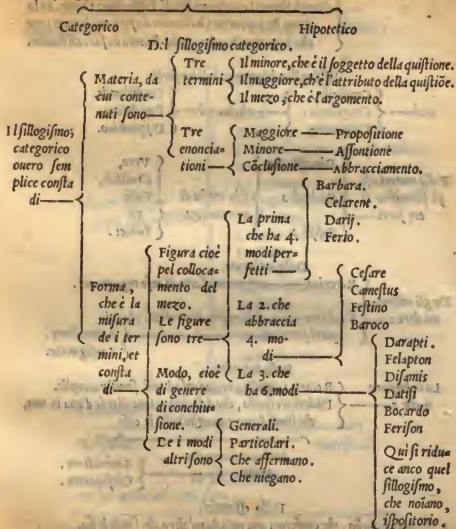 Categorico
Hipotetico
Del ſillogiſmo categorico.
Il ſillogiſmo;
categorico
ouero ſem
plice conſta
di
Materia, da
cui conte-
nuti ſono
Tre
termini
Il minore, che è il ſoggetto della quiſtione.
Il maggiore, ch'è l'attributo della quiſtiōe.
Il mezo, che è l'argomento.
Tre
enoncia-
tioni
Maggiore — Propoſitione
Minore — Aſſontione
Cōcluſione — Abbracciamento.
Forma,
che è la
miſura
de i ter
mini, et
conſta
di
Figura cioè
pel colloca-
mento del
mezo.
Le figure
ſono tre
La prima
che ha 4.
modi per-
fetti
Barbara.
Celarent.
Darij.
Ferio.
La 2. che
abbraccia
4. mo-
di
Ceſare
Cameſtus
Feſtino
Baroco
La 3. che
ha 6. modi
Darapti.
Felapton
Diſamis
Datiſi
Bocardo
Feriſon
Qui ſi ridu-
ce anco quel
ſillogiſmo,
che noīano,
iſpoſitorio.
Modo, cioè
di genere
di conchiu-
ſione.
De i modi
altri ſono
Generali.
Particolari.
Che affermano.
Che niegano.